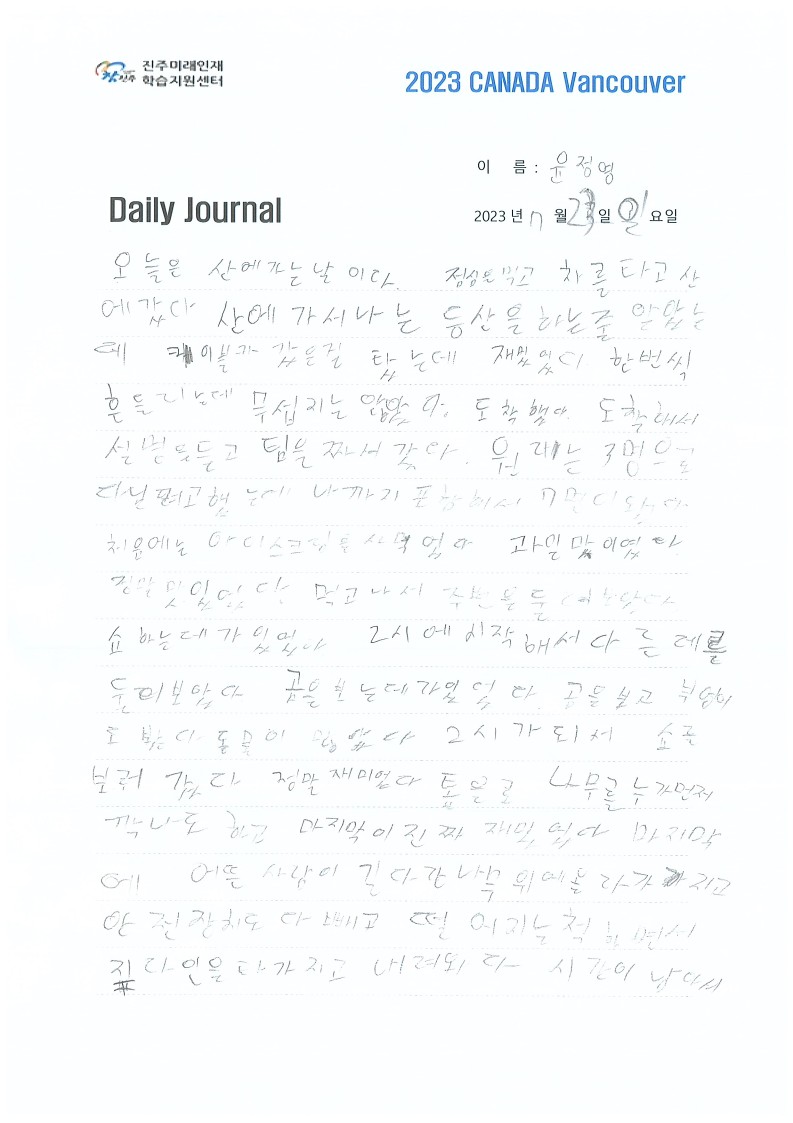 진주미래인재
학습지원센터
2023 CANADA Vancouver
이 름 : 윤정영
Daily Journal
2023 년 7 월 23 일 일 요일
오늘은 산에가는날 이다. 점심을먹고 차를 타고 산
에 갔다 산에 가서나는 등산을 하는줄 알았는
데 케이블카 같은걸 탔는데 재밌었다 한번씩
흔들리는데 무섭지는 않았다. 도착했다. 도착해서
설명을듣고 팀을 짜서 갔다. 원래는 3명으로
다닐려고했는데 나까지 포함해서 7명
처음에는 아이스크림을 사먹었다 과일맛이였다
정말 맛있었다 먹고나서 주변을 둘러보았다
쇼 하는데가있었다 2시에시작해서 다른데를
둘러보았다 곰을보는데가있었다. 곰을보고 부엉이
도 봤다 동물이 많았다 2시가되서 쇼를
보러 갔다 정말재미었다 톱으로 나무를누가먼저
깍나도 하고 마지막이진짜 재밌었다 마지막
에 어뜬 사람이 길다란나무위에올라가가지고
안전장치도 다빼고 떨어지는척 하면서
다인을타가지고 내려와다 시간이 남아서